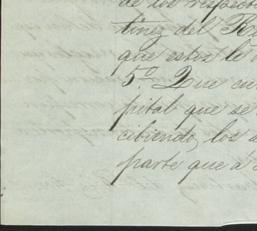 de los respect
tinez del Re
que estos le
5º. Que en
pital que se
cibiendo, los a
parte que a